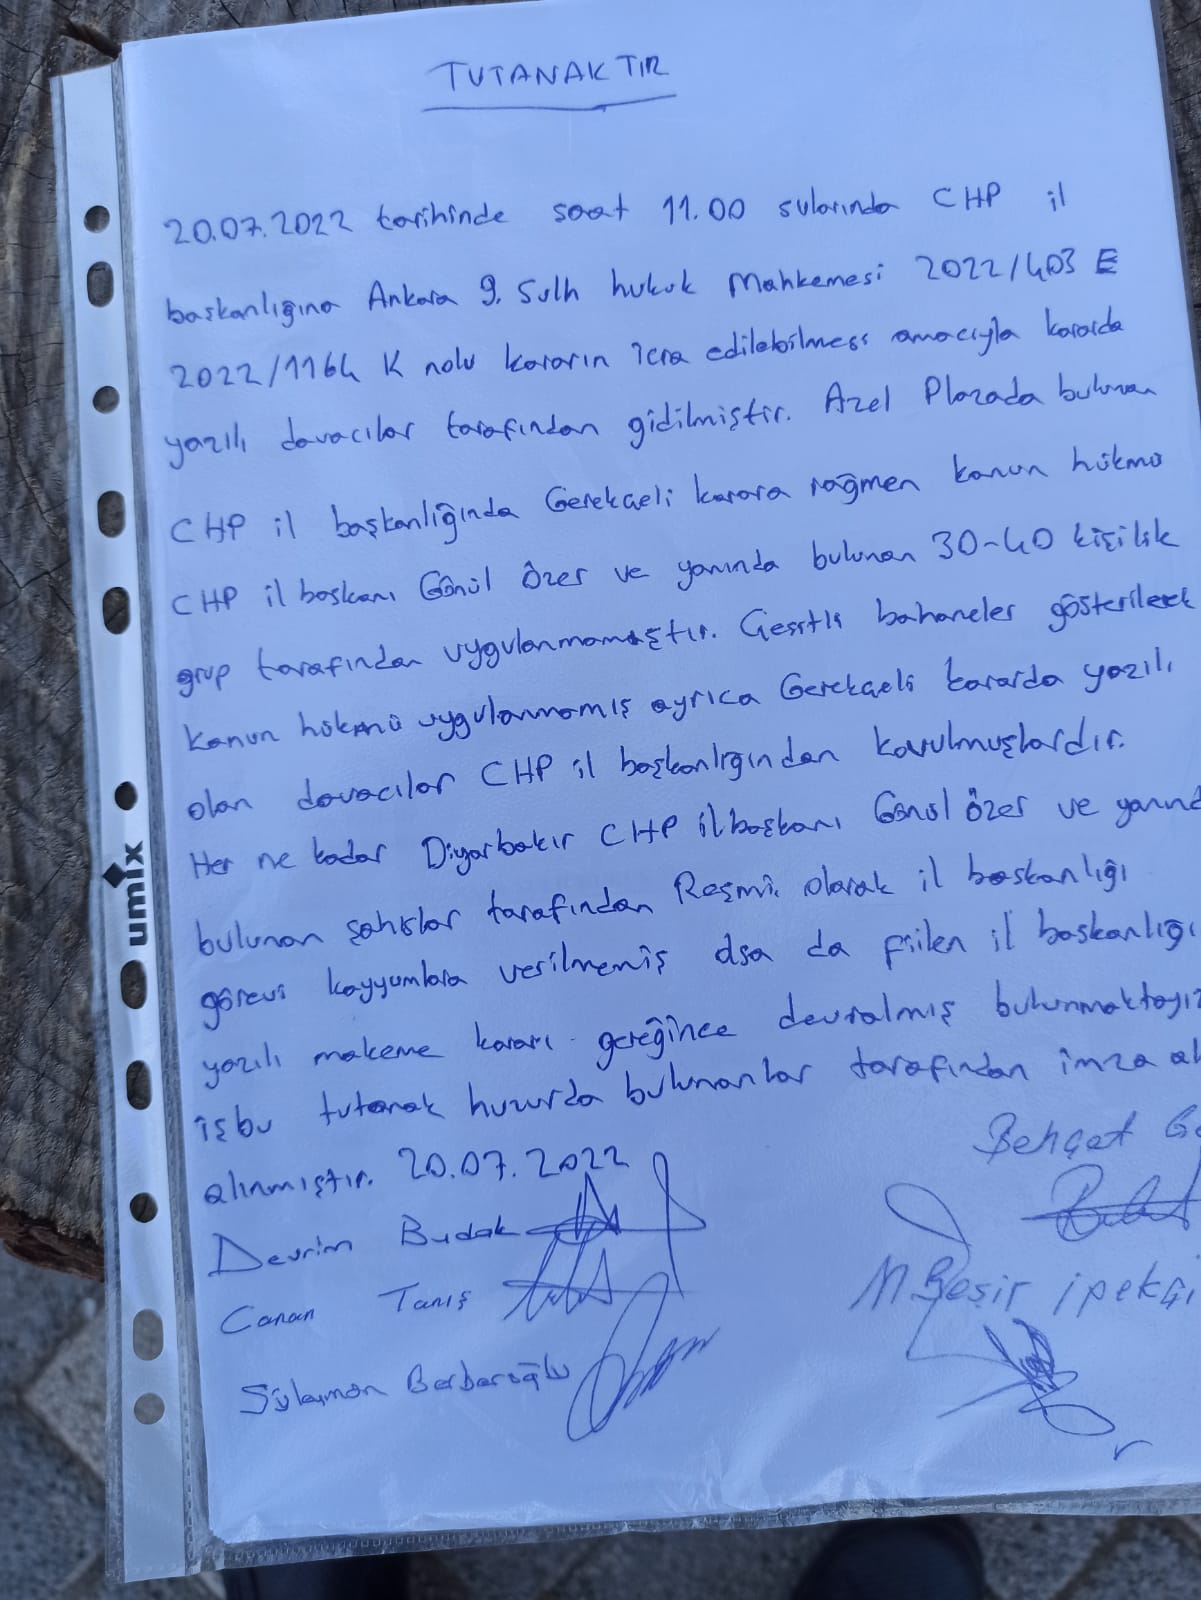 TUTANAKTIR
20.07.2022 tarihinde saat 11.00 sularında CHP il
başkanlığına Ankara 9. Sulh hukuk Mahkemesi 2022/403 E
2022/1164 K nolu kararın icra edilebilmesi amacıyla kararda
yazılı davacılar tarafından gidilmiştir. Azel Plazada bulunan
CHP il başkanlığında Gerekçeli karara rağmen kanun hükmü
CHP il başkanı Gönül Özer ve yanında bulunan 30-40 kişilik
grup tarafından uygulanmamıştır. Çeşitli bahaneler gösterilerek
kanun hükmü uygulanmamış ayrıca Gerekçeli kararda yazılı
olan davacılar CHP il başkanlığından kovulmuşlardır.
Her ne kadar Diyarbakır CHP il başkanı Gönül Özer ve yanınd
bulunan şahıslar tarafından Resmi olarak il başkanlığı
görevi kayyumlara verilmemiş olsa da fiilen il başkanlığı
yazılı makeme kararı gereğince devralmış bulunmaktayız
işbu tutanak huzurda bulunanlar tarafından imza al
alınmıştır. 20.07.2022
Behçet
Devrim Budak
Canan Tanış
M Beşir ipekçi
Süleyman Berberoğlu
umix